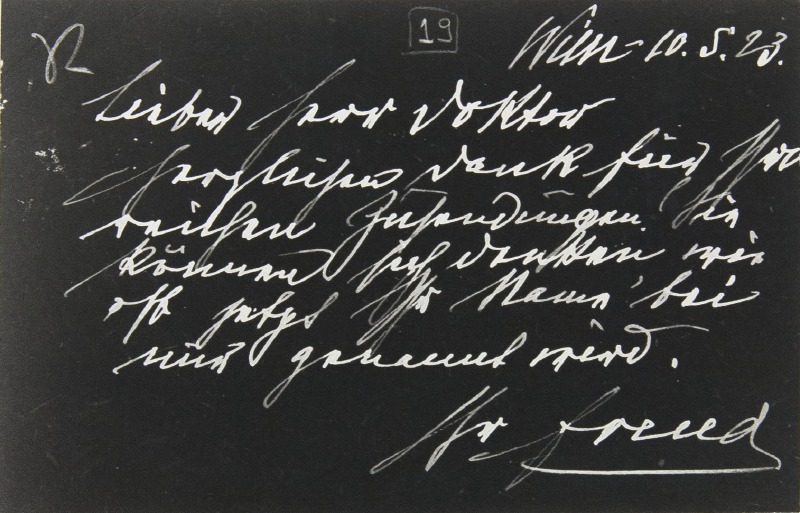 19
Wien 10.5.23.
Lieber Herr Doktor
Herzlichen Dank für Ihre
reichen Zusendungen. Sie
können sich denken wie
oft jetzt Ihr Name bei
mir genannt wird.
Ihr Freud